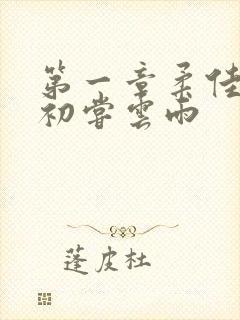 第一章柔佳
初嘗雲雨
蓬皮杜